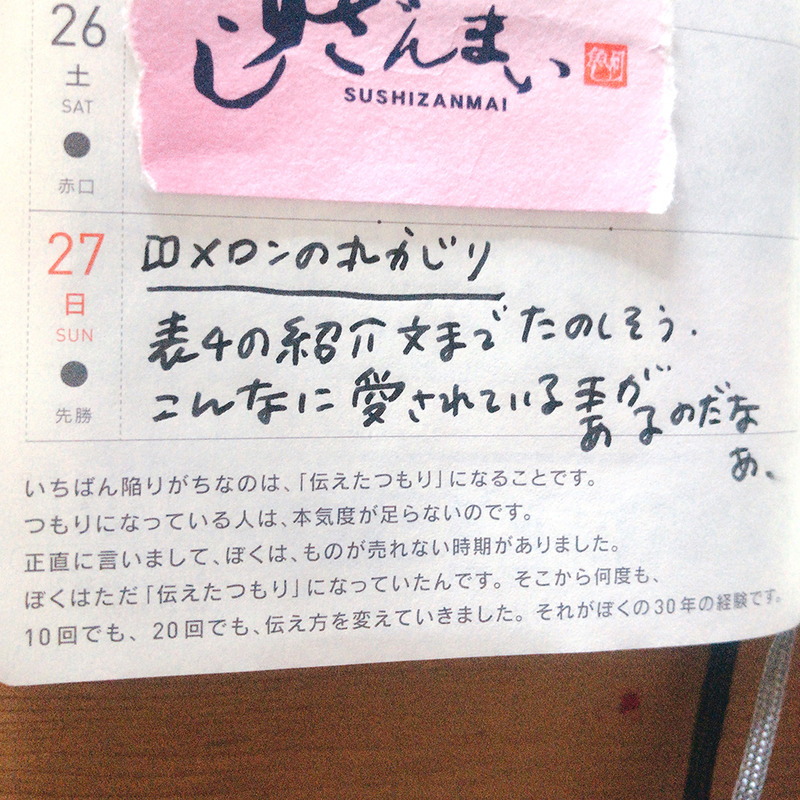 26
土
SAT
赤口
ざんまい
SUSHIZANMAI
27
日
SUN
先勝
メロンの丸かじり
表4の紹介文までたのしそう.
こんなに愛されている事が
あるのだな
あ、
いちばん陥りがちなのは、「伝えたつもり」になることです。
つもりになっている人は、本気度が足らないのです。
正直に言いまして、ぼくは、ものが売れない時期がありました。
ぼくはただ「伝えたつもり」になっていたんです。そこから何度も、
10回でも、20回でも、伝え方を変えていきました。それがぼくの30年の経験です。